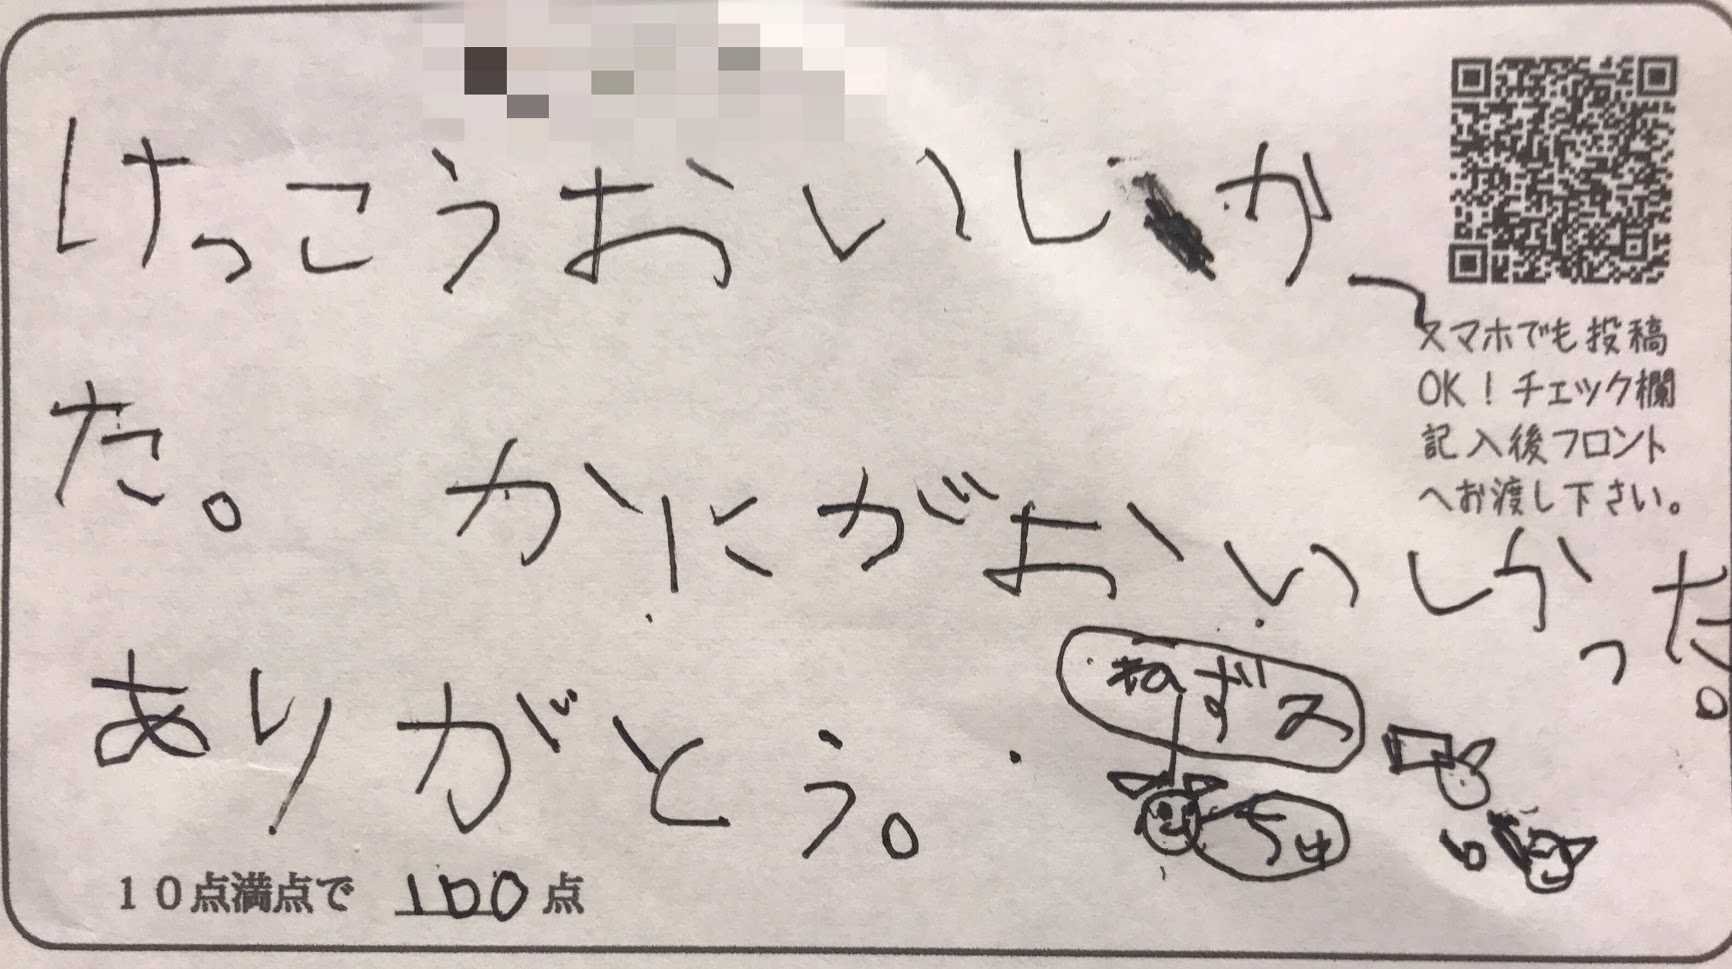 けっこうおいしかっ
た。かにがおいしかった。
ありがとう。
ねずみ
ちゅ
10点満点で 100点
スマホでも投稿
OK！チェック欄
記入後フロント
へお渡し下さい。